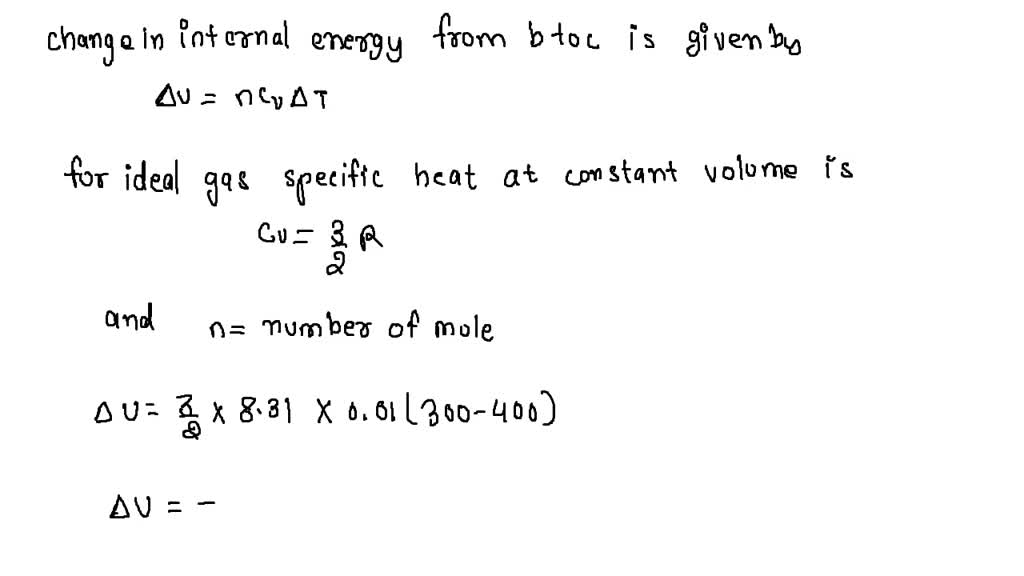 change in internal energy from b to c is given by
ΔU = n Cv ΔT
for ideal gas specific heat at constant volume is
Cv = 3/2 R
and n = number of mole
ΔU = 3/2 × 8.31 × 0.01 (300-400)
ΔU = -